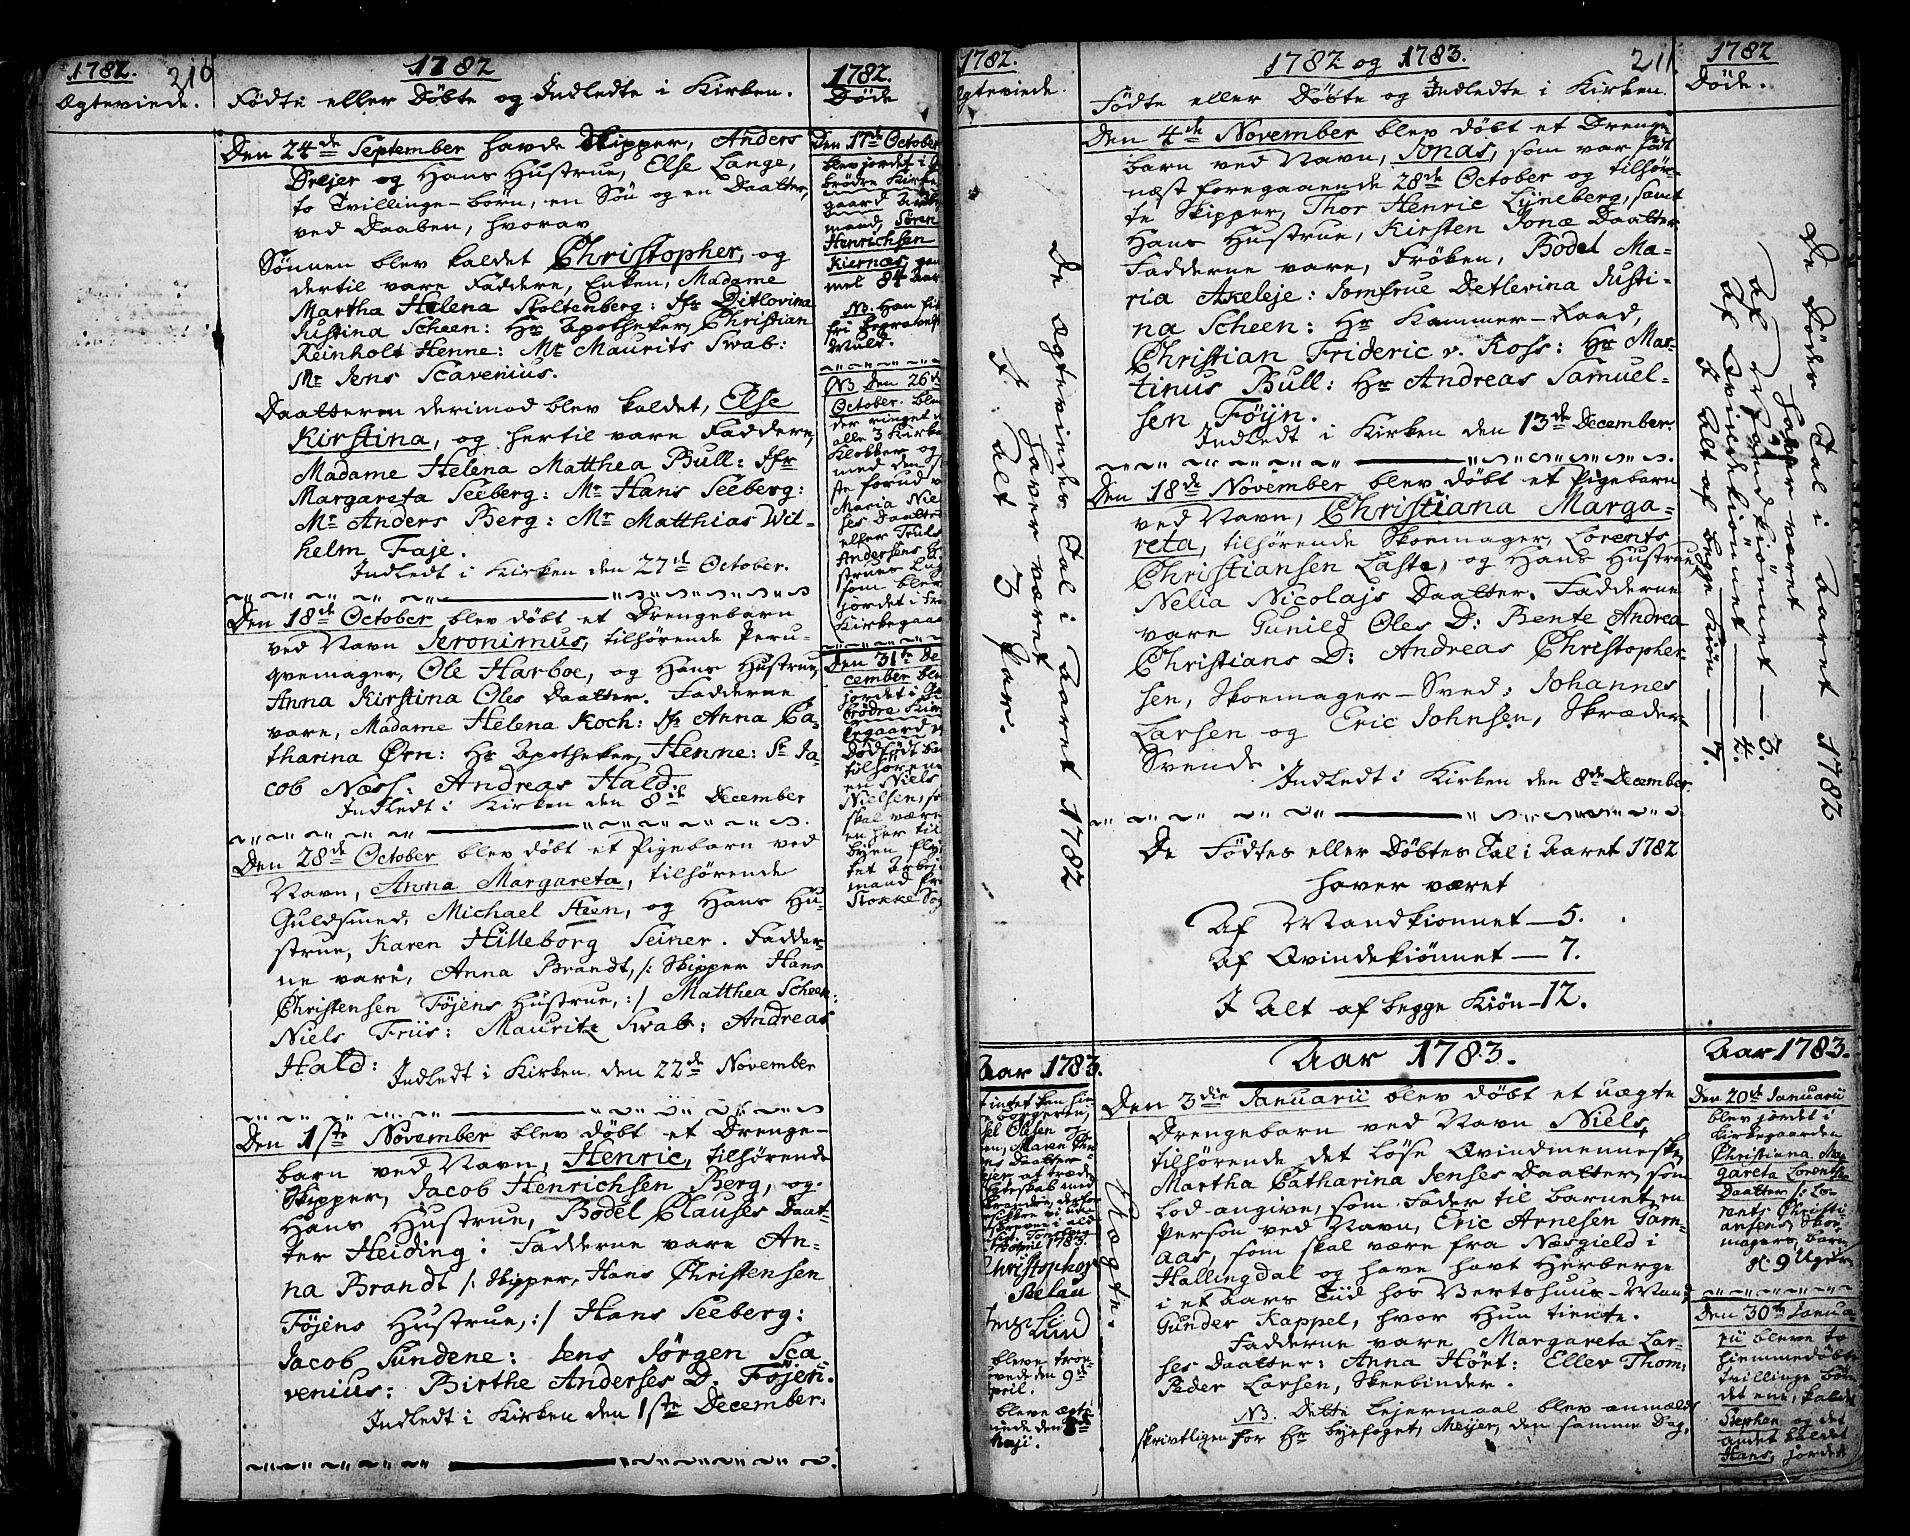 1782. 210
Ægteviede.
1782
Fødte eller Døbte og Indledte i Kirken.
Den 24de September havde Skipper, Anders
Drejer og Hans Hustrue, Else Lange,
to Tvillinge-börn, en Sön og en Daatter,
ved Daaben, hvorav
Sönnen blev kaldet Christopher, og
dertil vare Faddere, Enken, Madame
Martha Helena Stoltenberg: Jfr Ditlovina
Justina Scheen: Hr Apotheker, Christian
Reinholt Henne: Mr Maurits Swab:
Mr Jens Scavenius.
Daatteren derimod blev kaldet, Else
Kirstina, og hertil vare Faddere,
Madame Helena Matthea Bull: Jfr
Margareta Seeberg: Mr Hans Seeberg:
Mr Anders Berg: Mr Matthias Wil-
helm Faje.
Indledt i Kirken den 27de October.
Den 18de October blev döbt et Drengebarn
ved Navn Jeronimus, tilhørende Peru-
qvemager, Ole Harboe, og Hans Hustrue,
Anna Kirstina Oles Daatter. Fadderne
vare, Madame Helena Koch: Jfr Anna Ca-
tharina Ørn: Hr Apotheker, Henne: Sr Ja-
cob Næss: Andreas Hald:
Indledt i Kirken den 8de December
Den 28de October blev döbt et Pigebarn ved
Navn, Anna Margareta, tilhörende
Guldsmed, Michael Steen, og Hans Hu-
strue, Karen Hilleborg Seiner. Fadder-
ne vare, Anna Brandt, /: Skipper Hans
Christensen Föjens Hustrue, :/ Matthea Scheen:
Niels Friis: Mauritz Swab: Andreas
Hald: Indledt i Kirken den 22de November
Den 1ste November blev döbt et Drenge-
barn ved Navn, Henric, tilhörende
Skipper, Jacob Henrichsen Berg, og
Hans Hustrue, Bodel Clauses Daat-
ter Heiding: Fadderne vare An-
na Brandt /: Skipper, Hans Christensen
Föjens Hustrue, :/ Hans Seeberg:
Jacob Sundene: Jens Jörgen Sca
venius: Birthe Anderses D. Föjen:
Indledt i Kirken den 1ste December.
1782.
Døde
Den 17de October
blev jordet i
brödre Kirke
gaard Arbei
mand, Sören
Henrichsen
Kiernæs, gam
mel 84 Aar
NB. Han fik
fri begravelse
Muld.
NB Den 26de
October. blev
der ringet i
alle 3 Kirke
Klokker og
med den
ste forud
Maria Niel
ses Daatter
eller Truls
Andersens H
strues Lig
som blev
jordet i
Kirkegaa
Den 31te De
cember blev
jordet i
brödre Kir
kegaard
Dödfödt ba
tilhören
en Niels
Nielsen,
skal være
en her til
byen fly
tet Arbej
mand fra
Stokke Sog
1782.
Ægteviede.
De Ægteviedes Tal i Aaret 1782
haver været
I alt 3 Par.
1782 og 1783. 211.
Fødte eller Døbte og Indledte i Kirken.
Den 4de November blev döbt et Drenge-
barn ved Navn, Jonas, som var födt
næst foregaaende 28de October og tilhør-
te Skipper, Thor Henric Lyneberg, samt
Hans Hustrue, Kirsten Jonæ Daatter.
Fadderne vare, Fröken, Bodel Ma-
ria Akeleje: Jomfrue Detlevina Justi-
na Scheen: Hr Kammer-Raad,
Christian Frideric v. Koss: Hr Mar-
tinus Bull: Hr Andreas Samuel-
sen Föyn.
Indledt i Kirken den 13de December.
Den 18de November blev döbt et Pigebarn
ved Navn, Christiana Marga-
reta, tilhørende Skoemager, Lorents
Christiansen Laste, og Hans Hustrue,
Nelia Nicolajs Daatter. Fadderne
vare Gunild Oles D: Bente Andrea
Christians D: Andreas Christopher-
sen, Skoemager-Sved: Johannes
Larsen og Eric Johnsen, Skræder-
Svende.
Indledt i Kirken den 8de December.
De Födtes eller Döbtes Tal i Aaret 1782
haver været
Af Mandkionnet — 5.
Af Qvindekiönnet — 7.
I Alt af begge Kiön — 12.
1782
Døde.
De Döder Tal i Aaret 1782
haver været
Af Mandkiönnet — 3.
Af Qvindekiönnet — 4.
I Alt af begge Kiön — 7.
Aar 1783.
Christophor
Belau
bleve troe-
vede den 9de
pril.
bleve ægte
viede den 8de
Maji.
Aar 1783.
Den 3die Januarii blev döbt et uægte
Drengebarn ved Navn Niels,
tilhörende det löse Qvindmenneske,
Martha Catharina Jenses Daatter, som
lod angive, som Fader til barnet, en
Person ved Navn, Eric Arnesen Gam-
aas, som skal være fra Næsgield i
Hallingdal og have havt Herberge
i et Aars Tiid hos Vertshuus-Mand,
Gunder Kappel, hvor Hun tiente.
Fadderne vare, Margareta Lar-
ses Daatter: Anna Hört: Ellev Thom:
Peder Larsen, Skeebinder.
NB. Dette Lejermaal blev anmeldt
skrivtligen for Hr byefoget, Meijer, den samme Dag.
Uægte.
Aar 1783.
Den 20de Januarii
blev jordet i
Kirkegaarden
Christiana Mar
gareta Lorents
Daatter /: Lo-
rents Christi
ansens, Skoe-
magers, barn,
gl: 9 Uger.
Den 30te Janua-
rii bleve to
hiemmedöbte
Tvillinge börn
det ene, kaldet
Stephen og det
andet kaldet
Hans, jordet